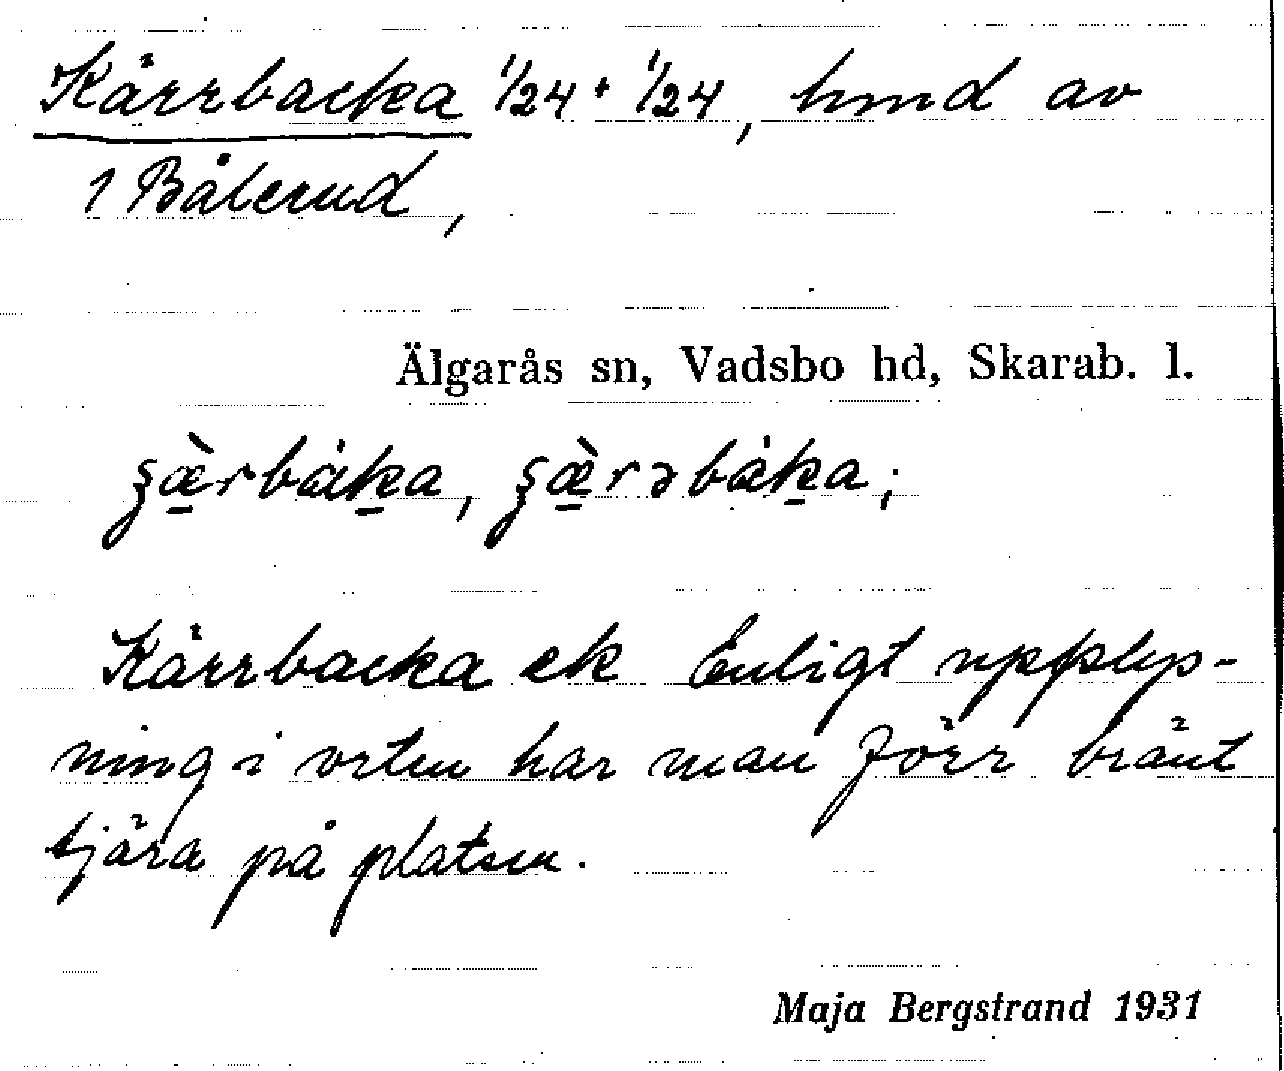 Kärrbacka 1/24 + 1/24, hmd av
1 Bålerud,
Älgarås sn, Vadsbo hd, Skarab. l.
ʂæ̀rbàka, ʂæ̀rəbàka;
Kärrbacka ek Enligt upplys-
ning i orten har man förr bränt
tjära på platsen.
Maja Bergstrand 1931